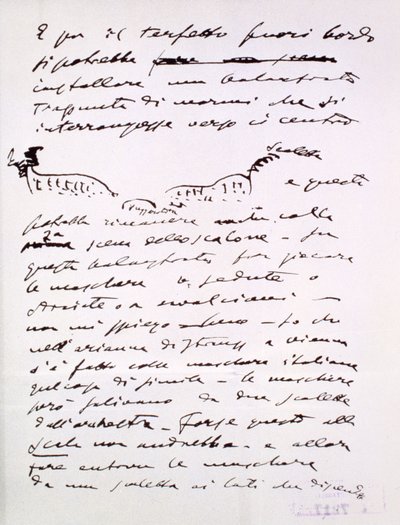 E poi il terzetto fuori bordo
si potrebbe
installare una balaustrata
di marmi che si
interrompesse verso il centro
Scaletta
e questa
potrebbe rimanere anche colla
2a scena dello scalone – su
questa balaustrata far giocare
le maschere o sedute o
sdraiate o a cavalcioni –
non mi spiego bene – so che
nell'arianna di Strauss a vienna
s'è fatto colle maschere italiane
qualcosa di simile – le maschere
però salivano da due scalette
dall'orchestra – Forse questo alla
Scala non andrebbe – e allora
fare entrare le maschere
da una scaletta ai lati che discende